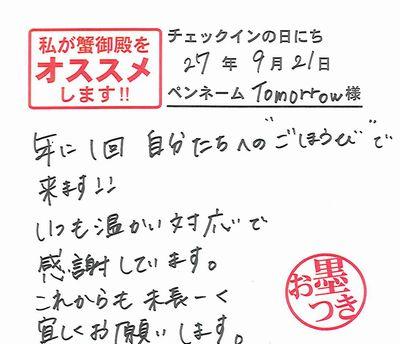 私が蟹御殿を
オススメ
します!!
チェックインの日にち
27年9月21日
ペンネーム Tomorrow様
年に1回 自分たちへの"ごほうび"で
来ます!!
いつも温かい対応で
感謝しています。
これからも末長ーく
宜しくお願いします。
お墨つき